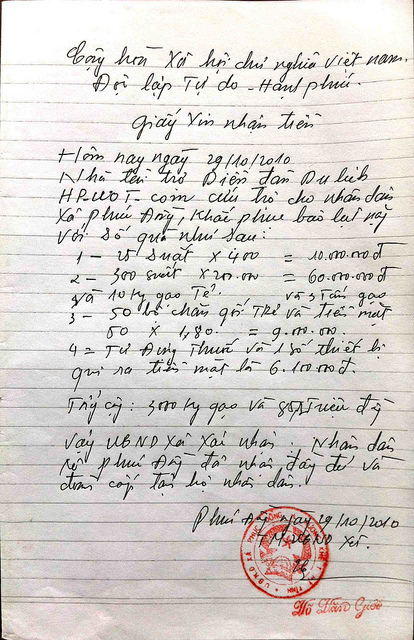 Cộng hoà Xã hội chủ nghĩa việt nam.
Độc lập Tự do - Hạnh phúc.
Giấy Xin nhận tiền
Hôm nay ngày 29/10/2010
Nhà tài trợ Diễn đàn Du lịch
cứu trợ cho nhân dân
Xã phúc Đồng, Khắc phục bão lụt
Với Số quà như Sau:
1 - 25 Suất × 400 = 10.000.000đ
2 - 300 suất × 200.000 = 60.000.000đ
và 10 kg gạo Tẻ. và 3 Tấn gạo
3 - 50 bộ chăn gối và tiền mặt
50 × 1,80. = 9.000.000.
4 = Thuốc và 1 số thiết bị
qui ra tiền mặt là 6.100.000đ.
3000 kg gạo và
Vậy UBND Xã Xác nhận. Nhân dân
Xã phúc Đồng đã nhận đầy đủ và
cấp hộ nhân dân.
Phúc Đồng ngày 29/10/2010
T/M UBND Xã.